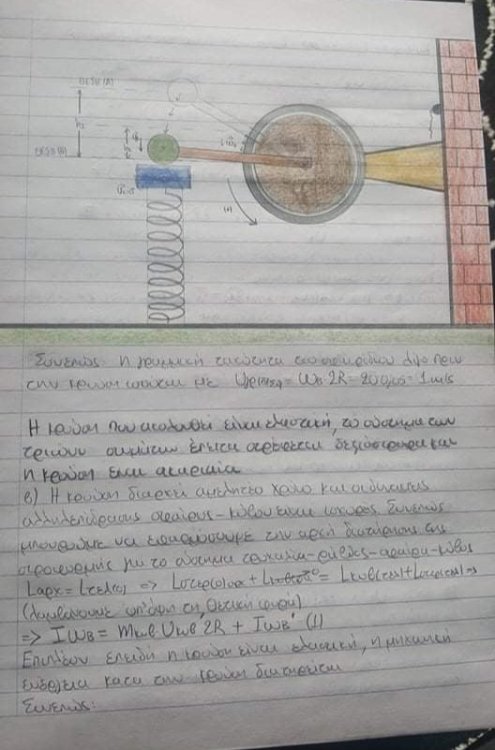 ΘΕΣΗ (Α)
h₂
ΘΕΣΗ (Β)
(+)
Συνεπώς η γραμμική ταχύτητα του σφαιριδίου λίγο πριν
την κρούση ισούται με = ω_B 2R = = 1 m/s
Η κρούση που ακολουθεί είναι ελαστική, το σύστημα των
τριών σωμάτων έπειτα στρέφεται δεξιόστροφα και
η κρούση είναι ακαριαία
β) Η κρούση διαρκεί αμελητέο χρόνο και οι δυνάμεις
αλληλεπίδρασης σφαίρας - κύβου είναι ισχυρές. Συνεπώς
μπορούμε να εφαρμόσουμε την αρχή διατήρησης της
στροφορμής για το σύστημα τροχαλία-ράβδος-σφαίρα-κύβος
Lαρχ = Lτελ => =>
(λαμβάνουμε υπόψη τη θετική φορά)
=> Iω_B = m_κυβ U_κυβ 2R + Iω_B' (1)
Επιπλέον επειδή η κρούση είναι ελαστική, η μηχανική
ενέργεια κατά την κρούση διατηρείται
Συνεπώς: